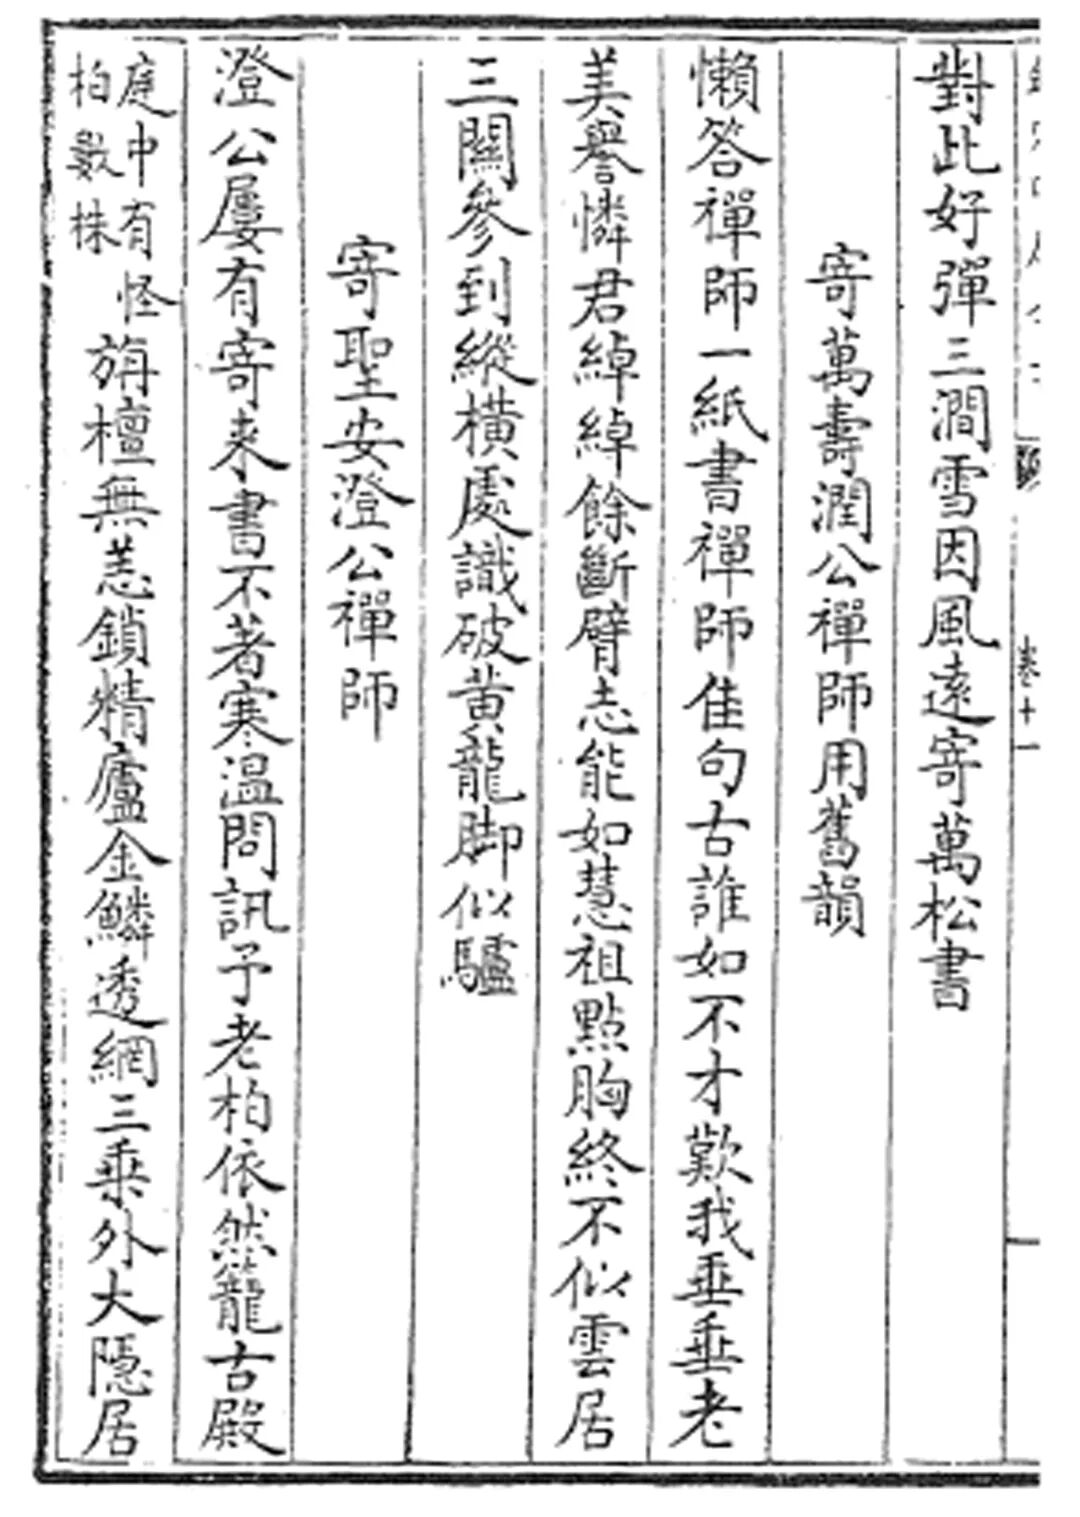 對此好彈三澗雪因風遠寄萬松書
寄萬壽潤公禪師用舊韻
懶答禪師一紙書禪師佳句古誰如不才歎我垂垂老
美譽憐君綽綽餘斷臂志能如慧祖點胸終不似雲居
三關參到縱橫處識破黃龍脚似驢
寄聖安澄公禪師
澄公屢有寄來書不著寒温問訊予老柏依然籠古殿
庭中有怪
柏數株
旃檀無恙鎖精廬金鱗透網三乗外大隱居
卷十一